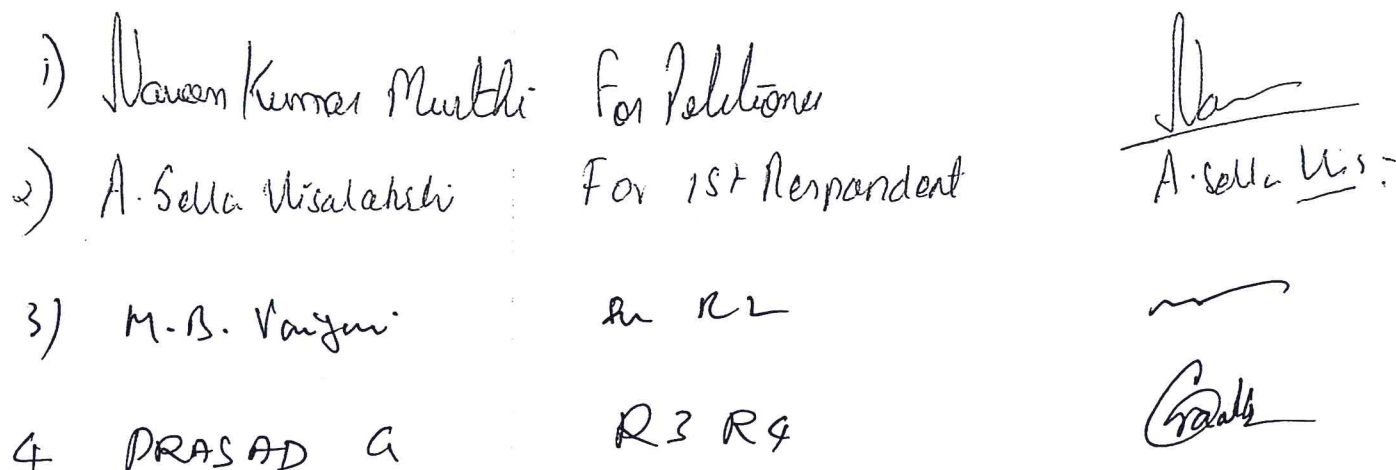 1) Naveen Kumar Murthi For Petitioner
2) A. Sella Visalakshi For 1st Respondent A. Sella Vis:
3) M. B. R2
4 PRASAD G R3 R4